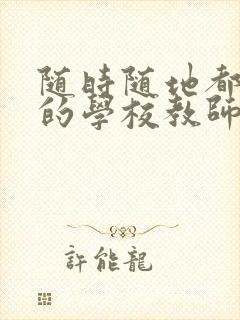 随時随地都
的學校教師
許能龍